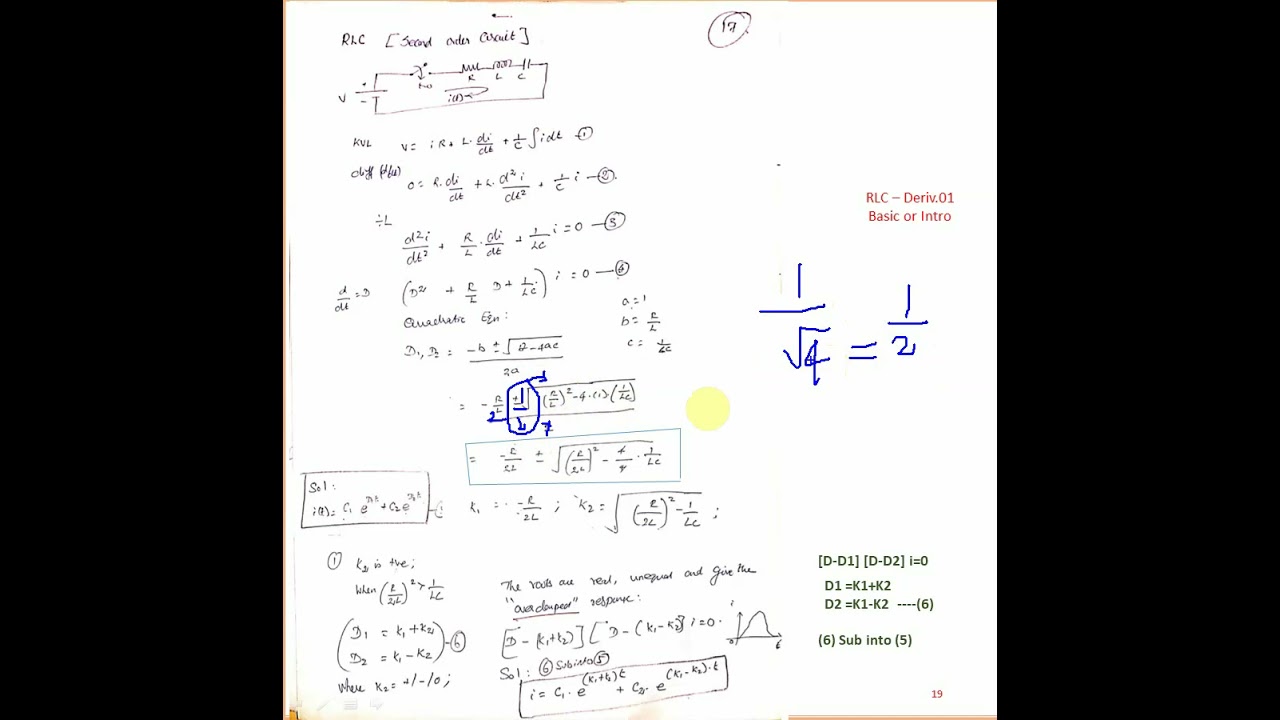 17
RLC [Second order Circuit]
R L C
V + - t=0 i(t)
KVL V = iR + L. di/dt + 1/C ∫ i dt —①
diff 0 = R. di/dt + L. d²i/dt² + 1/C i —②.
÷L d²i/dt² + R/L . di/dt + 1/LC i = 0 —③
d/dt = D (D² + R/L D + 1/LC) i = 0 —④
Quadratic Eqn :
a = 1
b = R/L
c = 1/LC
D1, D2 = -b ± √ 2 - 4ac / 2a
= -R/L ± √ (R/L)² - 4.(1).(1/LC)
2 1 2
= -R/2L ± √ (R/2L)² - 4/4 . 1/LC
Sol :
i(t) = C1 e^D1t + C2 e^D2t
K1 = -R/2L ; K2 = √ (R/2L)² - 1/LC ;
① K2 is +ve ;
When (R/2L)² > 1/LC
(D1 = K1 + K2
D2 = K1 - K2) —⑥
where K2 = +/-/0 ;
The roots are real, unequal and give the
"overdamped" response :
[D - (K1+K2)] [D - (K1-K2)] i = 0 .
i 0 t
Sol : ⑥ Sub into ⑤
i = C1 . e^(K1+K2)t + C2 . e^(K1-K2).t
RLC – Deriv.01
Basic or Intro
1/√4 = 1/2
[D-D1] [D-D2] i=0
D1 =K1+K2
D2 =K1-K2 ----(6)
(6) Sub into (5)
19